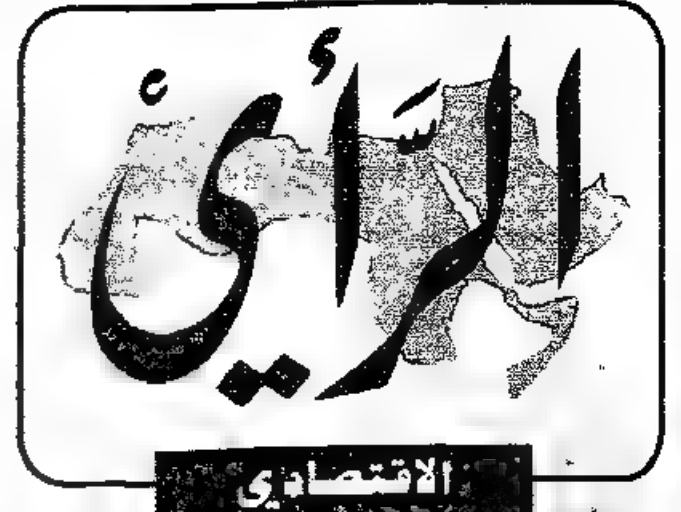 الرَّأيْ
الاقتصادي